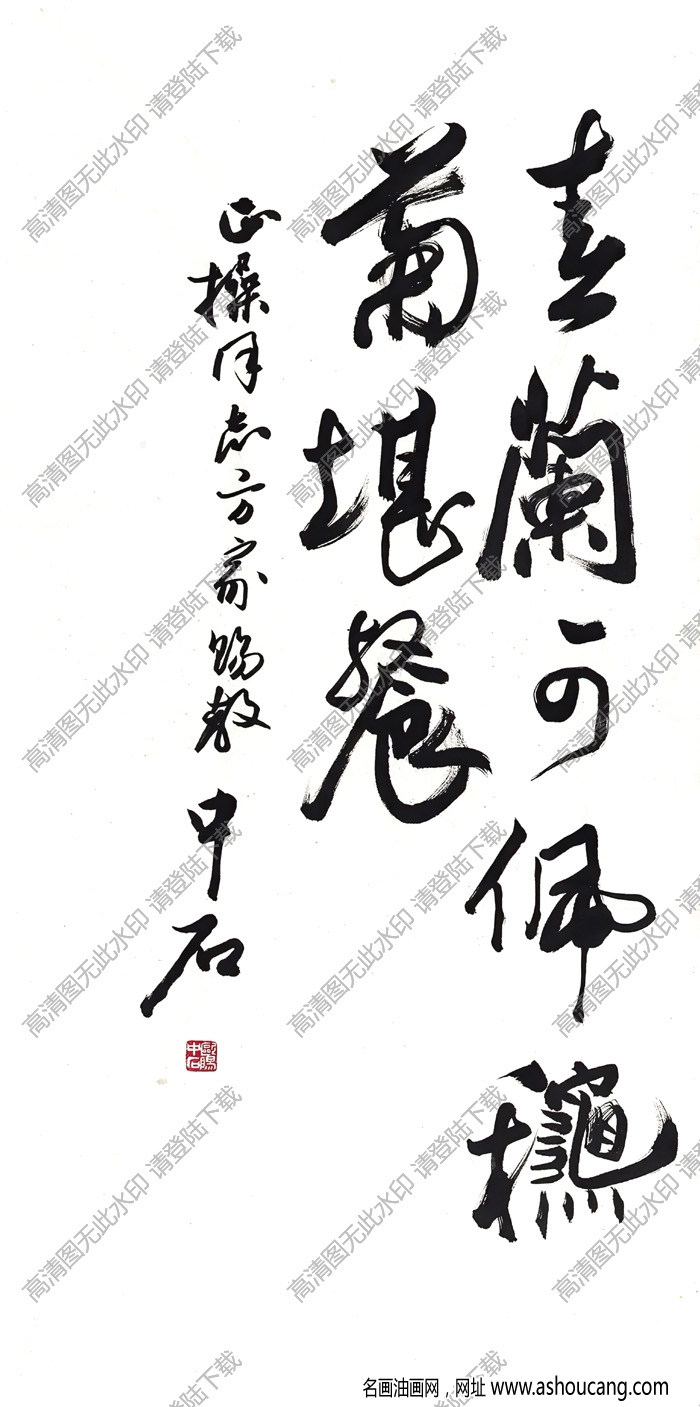 春蘭可佩龝
菊堪餐
正操同志方家賜教 中石
歐陽中石
高清图无此水印 请登陆下载
名画油画网，网址 www.ashoucang.com